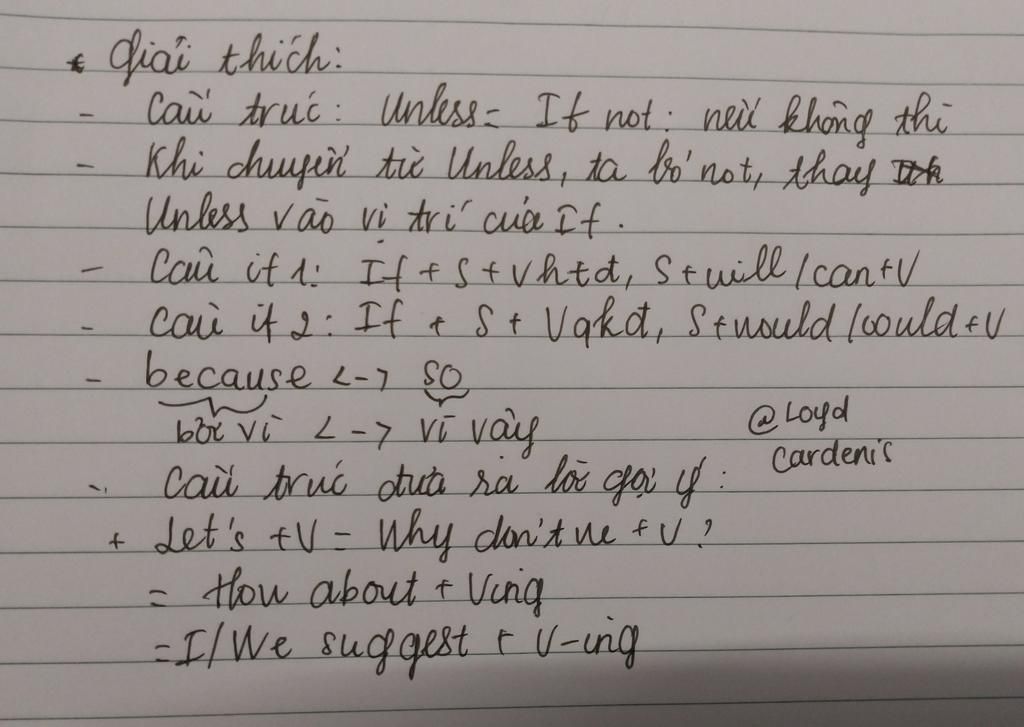 * Giải thích:
- Cấu trúc: Unless = If not: nếu không thì
- Khi chuyển từ Unless, ta bỏ not, thay
Unless vào vị trí của If.
- Câu if 1: If + S + Vhtđ, S + will / can + V
- Câu if 2: If + S + Vqkđ, S + would / could + V
- because <-> so
bởi vì <-> vì vậy
@Loyd
Cardenis
- Cấu trúc đưa ra lời gợi ý:
+ Let's + V = Why don't we + V?
= How about + Ving
= I/We suggest + V-ing